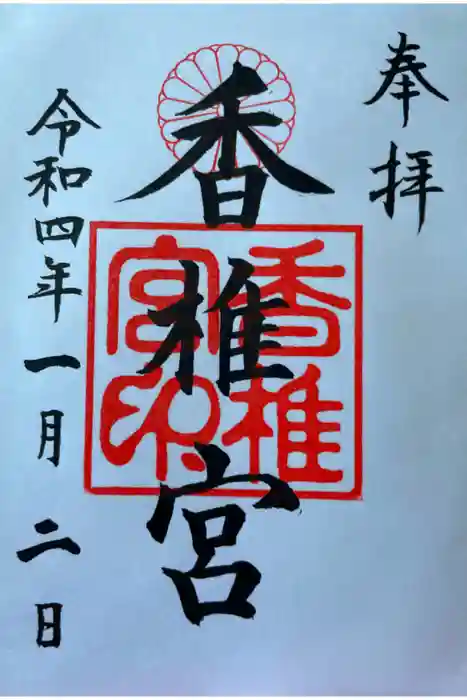 奉拝
香椎宮
香椎宮印
令和四年一月二日